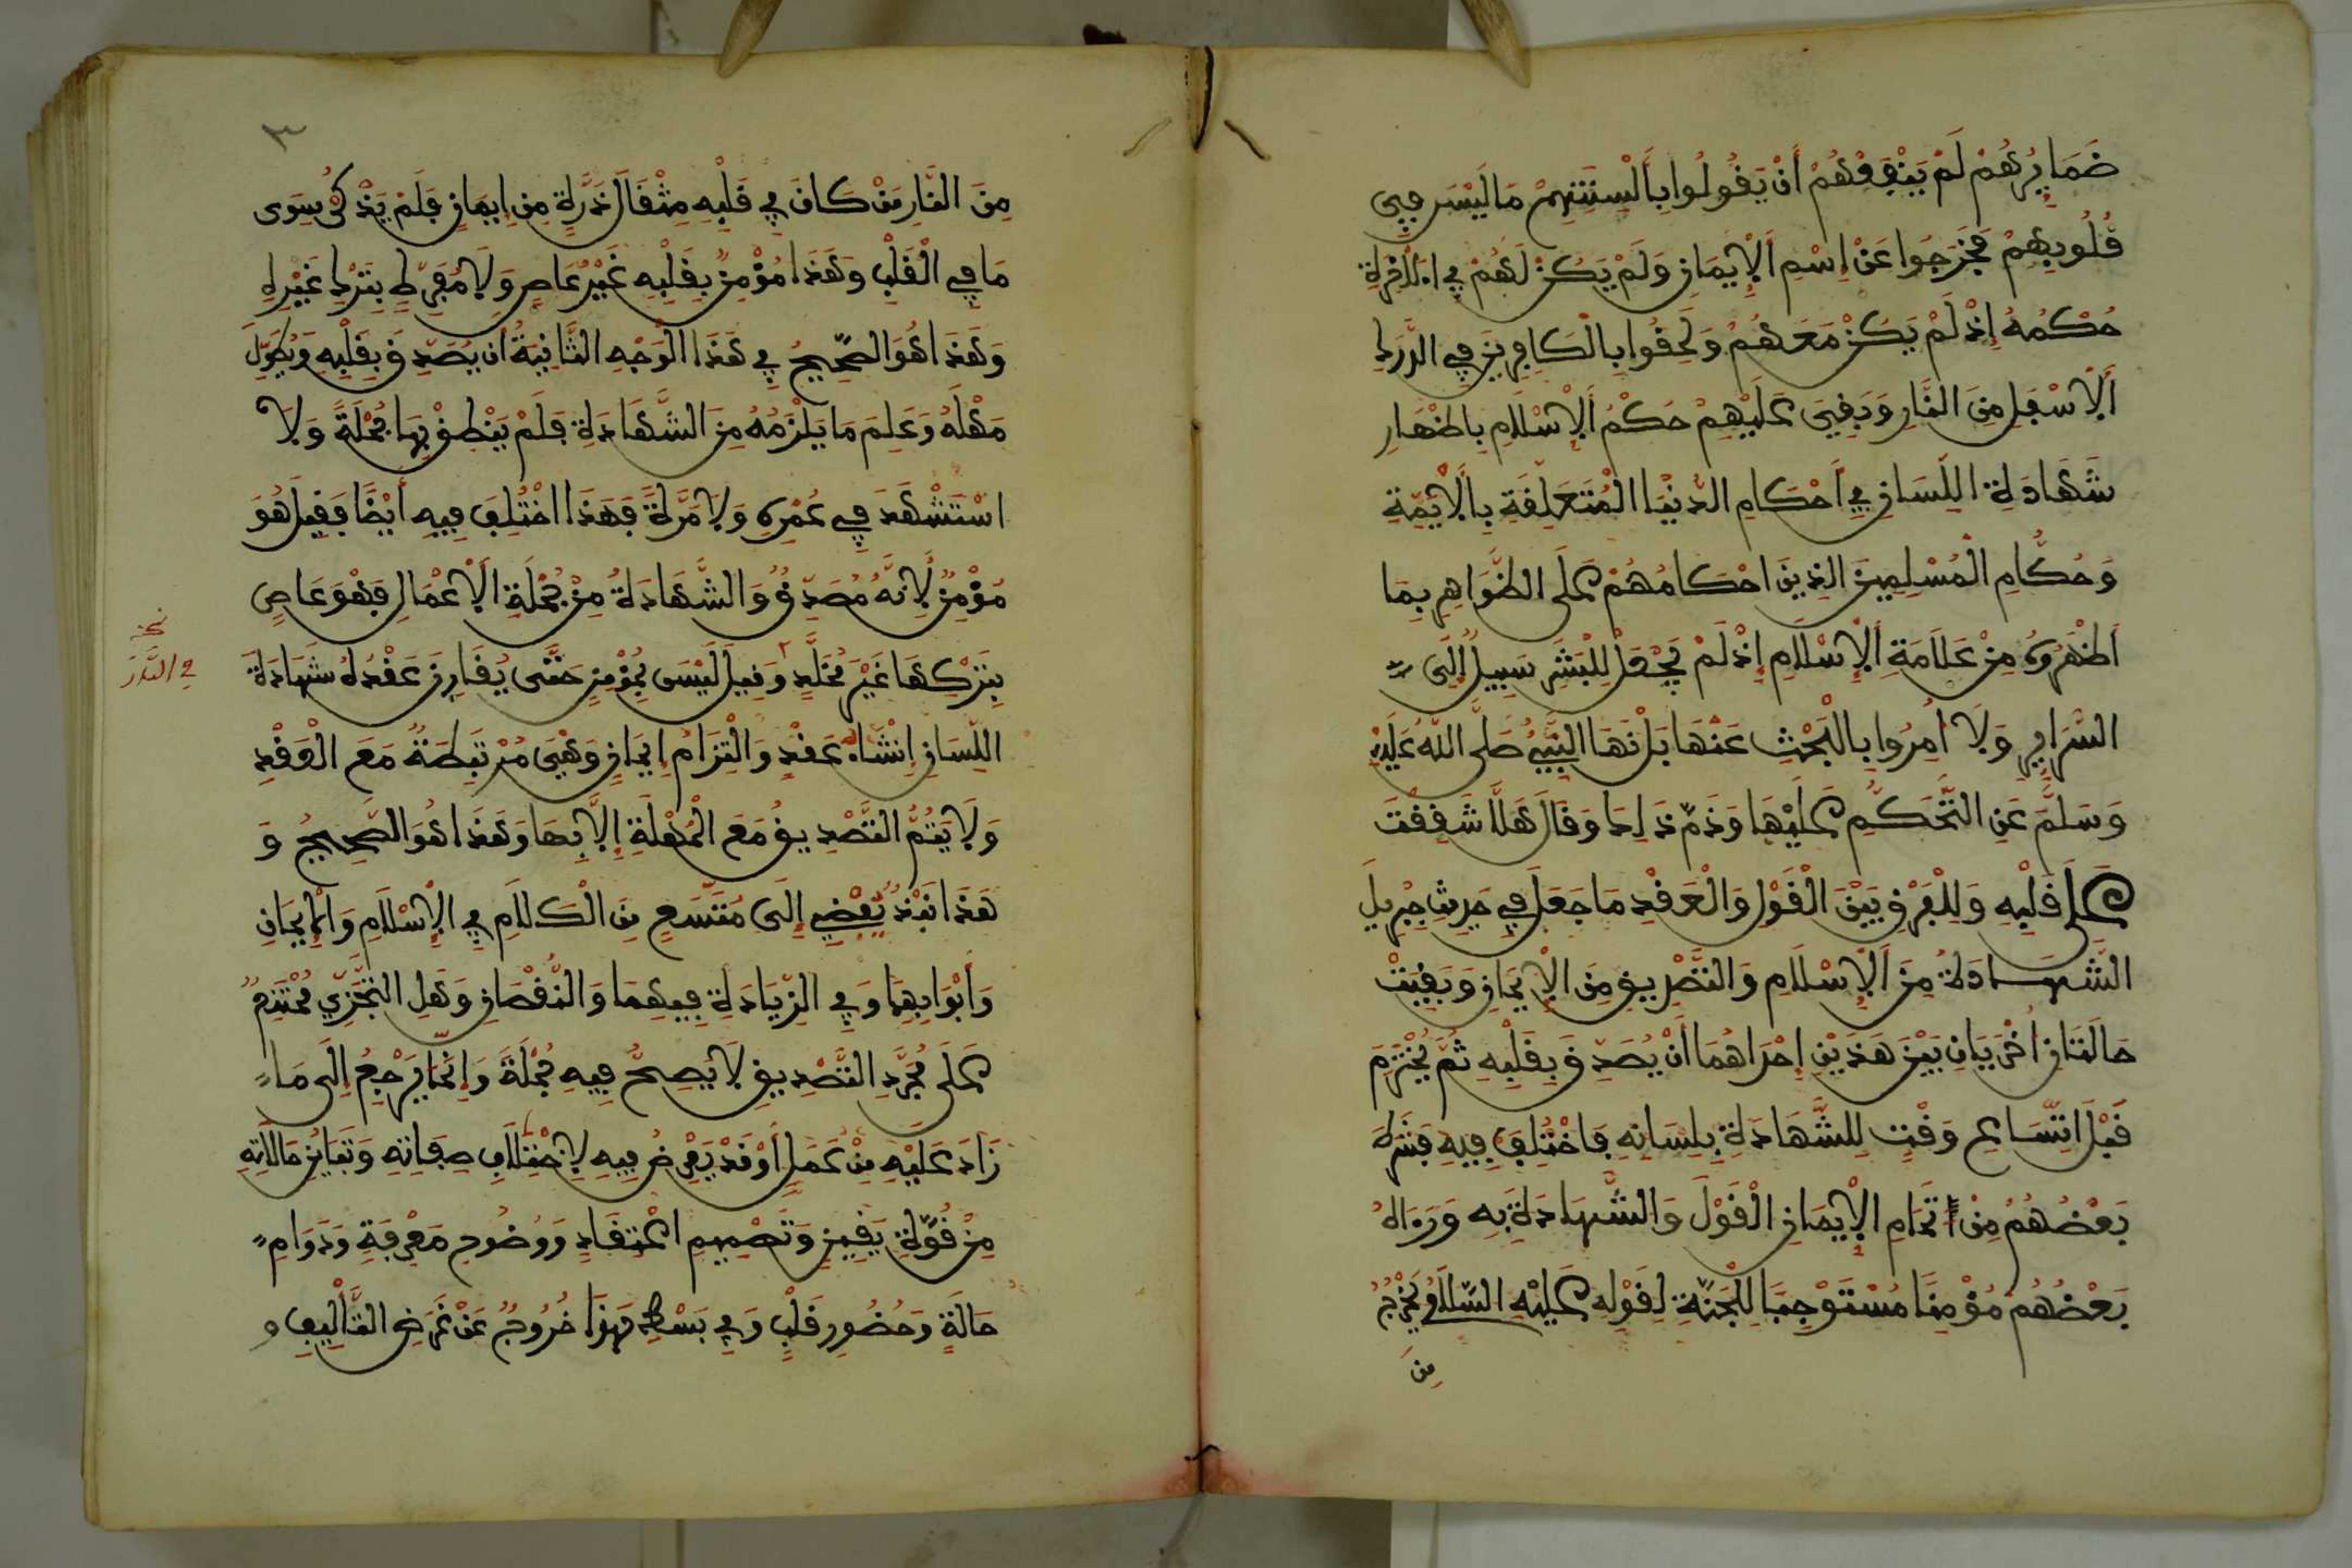 ضَمَايِرُهُمْ لَمْ يَنْفَعْهُمْ أَنْ يَقُولُوا بِأَلْسِنَتِهِمْ مَا لَيْسَ فِي
قُلُوبِهِمْ فَخَرَجُوا عَنْ إِسْمِ الْإِيمَانِ وَلَمْ يَكُنْ لَهُمْ فِي الَاخِرَةِ
حُكْمُهُ إِذْ لَمْ يَكُنْ مَعَهُمْ وَلَحِقُوا بِالْكَافِرِينَ فِي الدَّرَكِ
الَاسْفَلِ مِنَ النَّارِ وَبَقِيَ عَلَيْهِمْ حُكْمُ الْإِسْلَامِ بِإِظْهَارِ
شَهَادَةِ اللِّسَانِ فِي أَحْكَامِ الدُّنْيَا الْمُتَعَلِّقَةِ بِالَايِمَّةِ
وَحُكَّامِ الْمُسْلِمِينَ الذِينَ احْكَامُهُمْ عَلَى الظَّوَاهِرِ بِمَا
أَظْهَرُوهُ مِنْ عَلَامَةِ الْإِسْلَامِ إِذْ لَمْ يُجْعَلْ لِلْبَشَرِ سَبِيلٌ إِلَى
السَّرَايِرِ وَلَا أُمِرُوا بِالْبَحْثِ عَنْهَا بَلْ نَهَا النَّبِيُّ صَلَّى اللهُ عَلَيْهِ
وَسَلَّمَ عَنِ التَّحَكُّمِ عَلَيْهَا وَذَمَّ ذَلِكَ وَقَالَ هَلَّا شَقَقْتَ
عَلَى قَلْبِهِ وَلِلْفَرْقِ بَيْنَ الْقَوْلِ وَالْعَقْدِ مَا جَعَلَ فِي حَدِيثِ جِبْرِيلَ
الشَّهَادَةَ مِنَ الْإِسْلَامِ وَالتَّصْدِيقَ مِنَ الْإِيمَانِ وَبَقِيَتْ
حَالَتَانِ أُخْرَيَانِ بَيْنَ هَذَيْنِ إِحْدَاهُمَا أَنْ يُصَدِّقَ بِقَلْبِهِ ثُمَّ يُخْتَرَمَ
قَبْلَ اتِّسَاعِ وَقْتٍ لِلشَّهَادَةِ بِلِسَانِهِ فَاخْتُلِفَ فِيهِ فَشَرَطَ
بَعْضُهُمْ مِنْ تَمَامِ الْإِيمَانِ الْقَوْلَ وَالشَّهَادَةَ بِهِ وَرَءَاهُ
بَعْضُهُمْ مُؤْمِنًا مُسْتَوْجِبًا لِلْجَنَّةِ لِقَوْلِهِ عَلَيْهِ السَّلَامُ يَخْرُجُ
مِنَ
٣
مِنَ النَّارِ مَنْ كَانَ فِي قَلْبِهِ مِثْقَالُ ذَرَّةٍ مِنِ إِيمَانٍ فَلَمْ يَذْكُرْ سِوَى
مَا فِي الْقَلْبِ وَهَذَا مُؤْمِنٌ بِقَلْبِهِ غَيْرُ عَاصٍ وَلَا مُفَرِّطٍ بِتَرْكِ غَيْرِهِ
وَهَذَا هُوَ الصَّحِيحُ فِي هَذَا الْوَجْهِ الثَّانِيَةُ أَنْ يُصَدِّقَ بِقَلْبِهِ وَيُطَوِّلَ
مَهْلَهُ وَعَلِمَ مَا يَلْزَمُهُ مِنَ الشَّهَادَةِ فَلَمْ يَنْطِقْ بِهَا جُمْلَةً وَلَا
اسْتَشْهَدَ فِي عُمْرِهِ وَلَا مَرَّةً فَهَذَا اخْتُلِفَ فِيهِ أَيْضًا فَقِيلَ هُوَ
مُؤْمِنٌ لِأَنَّهُ مُصَدِّقٌ وَالشَّهَادَةُ مِنْ جُمْلَةِ الَاعْمَالِ فَهْوَ عَاصٍ
بِتَرْكِهَا غَيْرُ مُخَلَّدٍ وَقِيلَ لَيْسَ بِمُؤْمِنٍ حَتَّى يُقَارِنَ عَقْدَهُ شَهَادَةُ
نخ
في النار
اللِّسَانِ إِنْشَاءُ عَقْدٍ وَالْتِزَامُ إِيمَانٍ وَهْيَ مُرْتَبِطَةٌ مَعَ الْعَقْدِ
وَلَا يَتِمُّ التَّصْدِيقُ مَعَ الْمُهْلَةِ إِلَّا بِهَا وَهَذَا هُوَ الصَّحِيحُ وَ
هَذَا نَبْذٌ يُفْضِي إِلَى مُتَّسَعٍ مِنَ الْكَلَامِ فِي الْإِسْلَامِ وَالْإِيمَانِ
وَأَبْوَابِهِمَا وَفِي الزِّيَادَةِ فِيهِمَا وَالنُّقْصَانِ وَهَلِ التَّجَزِّي مُمْتَنِعٌ
عَلَى مُجَرَّدِ التَّصْدِيقِ لَا يَصِحُّ فِيهِ جُمْلَةً وَإِنَّمَا يَرْجِعُ إِلَى مَا
زَادَ عَلَيْهِ مِنْ عَمَلٍ أَوْ قَدْ يَعْرِضُ فِيهِ لِاخْتِلَافِ صِفَاتِهِ وَتَبَايُنِ حَالَاتِهِ
مِنْ قُوَّةِ يَقِينٍ وَتَصْمِيمِ اعْتِقَادٍ وَوُضُوحِ مَعْرِفَةٍ وَدَوَامِ
حَالَةٍ وَحُضُورِ قَلْبٍ وَفِي بَسْطِ هَذَا خُرُوجٌ عَنْ غَرَضِ التَّأْلِيفِ و